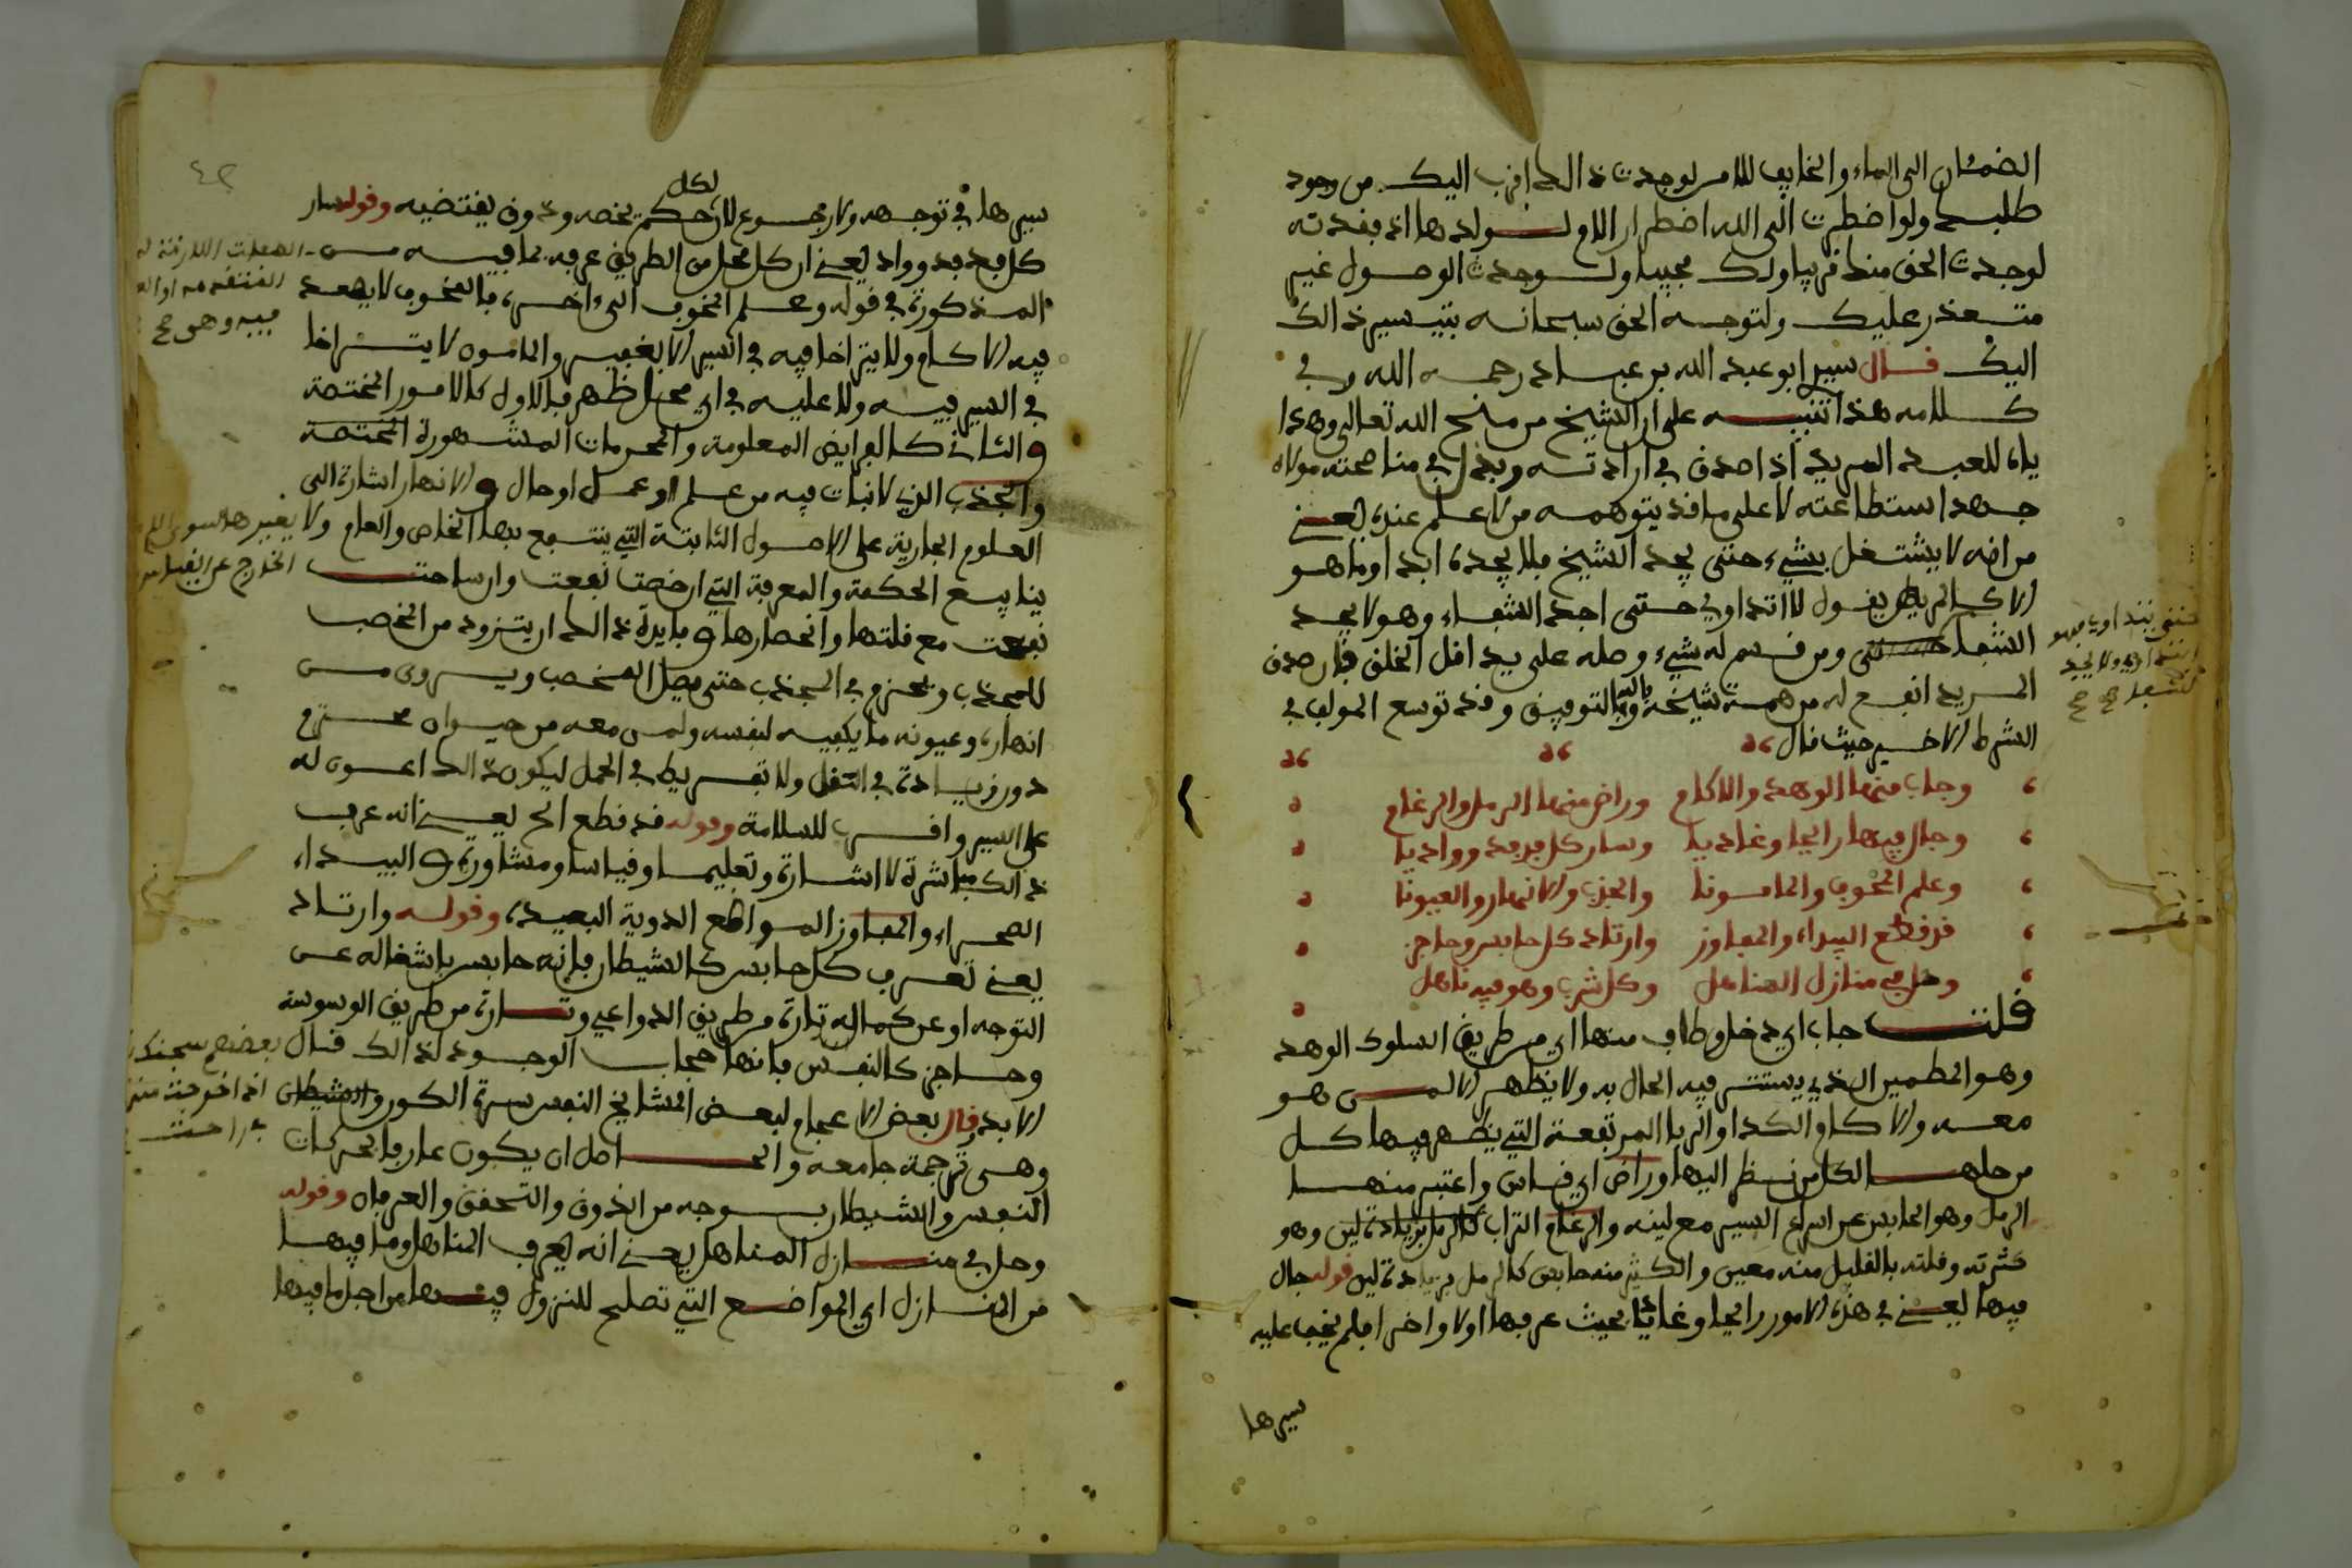 الضمئان الى الماء والخايف للامن لوجدت ذالك اقرب اليك من وجود
طلبك ولو اضطررت الى الله اضطرار الام لولدها اذا فقدته
لوجدت الحق منك قريبا ولك مجيبا ولوجدت الوصول غير
متعذر عليك ولتوجه الحق سبحانه بتيسير ذالك
اليك قال سيدي ابو عبد الله بن عباد رحمه الله وفي
كلامه هذا تنبيه على ان الشيخ من منح الله تعالى وهدا
ياه للعبد المريد اذا صدق في ارادته وبذل في مناصحته مولاه
جهد استطاعته لا على ما قد يتوهمه من لا علم عنده يعني
من انه لا يشتغل بشيء حتى يجد الشيخ فلا يجده ابدا وما هو
الا كالمريض يقول لا اتداوى حتى اجد الشفاء وهو لا يجد
الشفا حتى ومن قسم له شيء وصله على يد اقل الخلق فان صدق
المريد انفع له من همة شيخه وبالله التوفيق وقد توسع المولف في
الشرط الاخير حيث قال
وجاب منها الوهد والاكام وراض منها الرمل والرغام
وجال فيها رايحا وغاديا وسار كل فدفد وواديا
وعلم المخوف والمامونا والجذب والانهار والعيونا
قد قطع البيداء والمفاوز وارتاد كل حابس وحاجز
وحل في منازل المناهل وكل شرب وهو فيه ناهل
قلت جاب اي دخل وطاف منها اي من طريق السلوك الوهد
وهو المطمين الذي يستتر فيه الحال به ولا يظهر الا لمن هو
معه والاكام الكدا والربا المرتفعة التي يظهر فيها كل
من حلها لكل من نظر اليها وراض اي قاس واعتبر منها
الرمل وهو الحابس عن اسراع السير مع لينه والرغام التراب كالرمل بزيادة لين وهو
كثرته وقلته فالقليل منه معين والكثير منه حابس كالرمل بزيادة لين قوله جال
فيها يعني في هذه الامور رايحا وغاديا بحيث عرفها اولا واخرا فلم يخف عليه
سيرها
تتداوى فهو
ولا يجد
الشفا صح
٤٢
سيرها في توجهه ولا رجوع لان لكل حكم يخصه وذوق يقتضيه وقوله سار
كل فدفد وواد يعني ان كل محل من الطريق عرفه بما فيه من
المذكورة في قوله وعلم المخوف الى اخره، فالمخوف لا يصعد
فيه الا كام ولا يتراخا فيه في السير الا بخفير والمامون لا يتراخا
في السير فيه ولا عليه في اي محل ظهر فالاول كالامور المختصة
والثاني كالفرايض المعلومة والمحرمات المشهورة المختصة
والجذب الذي لا نبات فيه من علم او عمل او حال والانهار اشارة الى
العلوم الجارية على الاصول الثابتة التي ينتفع بها الخاص والعام ولا يغيرها سوى
ينابيع الحكمة والمعرفة التي ان خصت نفعت وان ساحت
نفعت مع قلتها وانحصارها وفايدة ذالك ان يتزود من الخصب
للجذب ويحزم في الجذب حتى يصل المخصب ويسروى من
انهاره وعيونه ما يكفيه لنفسه ولمن معه من حيوان محترم
دون زيادة في الثقل ولا تفريط في الحمل ليكون ذالك اعون له
على السير واقرب للسلامة وقوله قد قطع الخ يعني انه عرف
ذالك مباشرة لا اشارة وتعليما وقياسا ومشاورة والبيداء
الصحراء والمفاوز المواضع الدوية البعيدة، وقوله وارتاد
يعني تعرف كل حابس كالشيطان فانه حابس باشغاله عن
التوجه او عن كماله تارة من طريق الدواعي وتارة من طريق الوسوسة
وحاجز كالنفس فانها حجاب الوجود لذالك قال بعضهم سجنك
الابد وقال بعض الاعجام لبعض المشايخ النفس سرة الكور والشيطان
وهي ترجمة جامعة والحاصل ان يكون عارفا بحركات
النفس والشيطان بوجه من الذوق والتحقق والعرفان وقوله
وحل في منازل المناهل يعني انه يعرف المناهل وما فيها
من المنازل اي المواضع التي تصلح للنزول فيها من اجل ما فيها
الصفات اللازمة له
فيه وهي صح
الخارج عن القياس
اذا خرجت منها